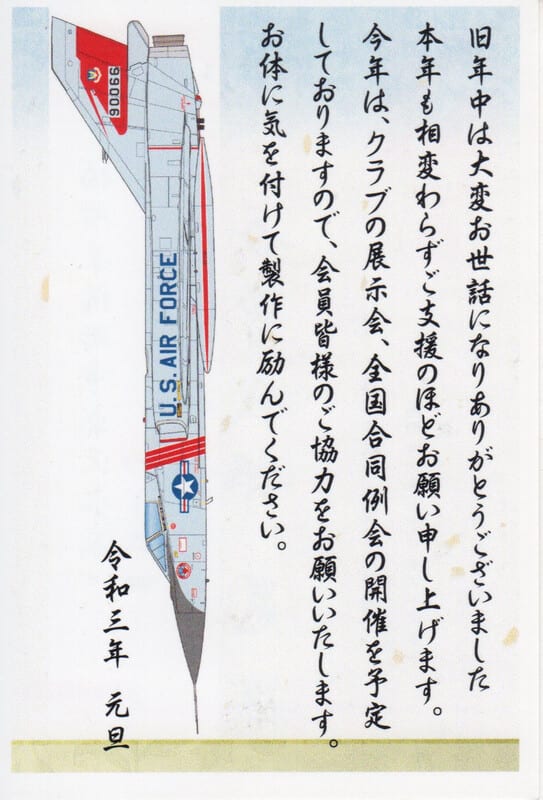 旧年中は大変お世話になりありがとうございました
本年も相変わらずご支援のほどお願い申し上げます。
今年は、クラブの展示会、全国合同例会の開催を予定
しておりますので、会員皆様のご協力をお願いいたします。
お体に気を付けて製作に励んでください。
令和三年 元旦
U.S. AIR FORCE
90066